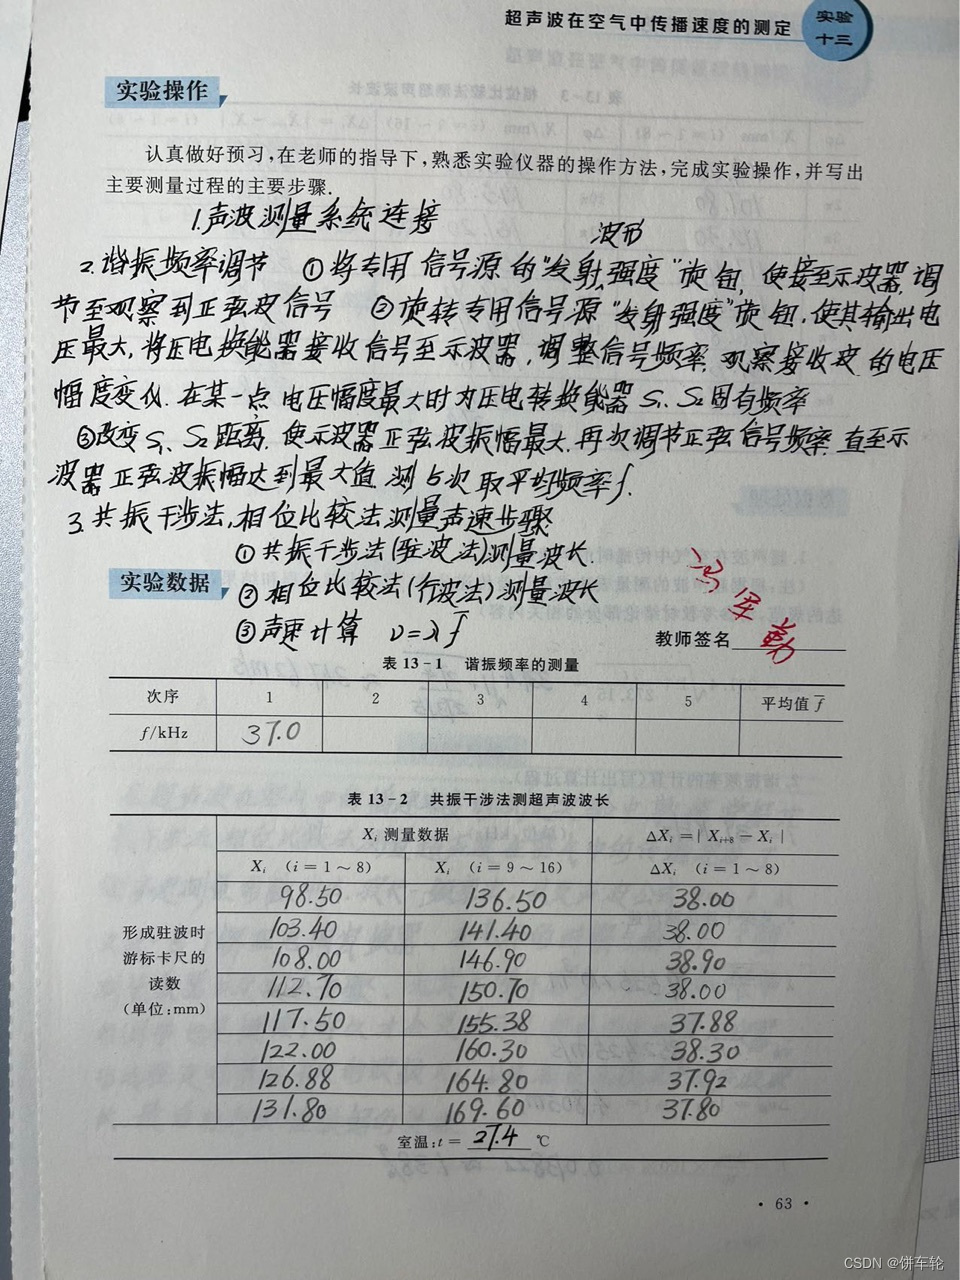 超声波在空气中传播速度的测定
实验
十三
实验操作
认真做好预习,在老师的指导下,熟悉实验仪器的操作方法,完成实验操作,并写出
主要测量过程的主要步骤.
1.声波测量系统连接
波形
2.谐振频率调节 ①将专用信号源的“发射强度”旋钮,使接至示波器,调
节至观察到正弦波信号 ②旋转专用信号源“发射强度”旋钮,使其输出电
压最大,将压电换能器接收信号至示波器,调整信号频率,观察接收波的电压
幅度变化.在某一点电压幅度最大时为压电转换能器S₁、S₂固有频率
③改变S₁、S₂距离,使示波器正弦波振幅最大.再次调节正弦信号频率,直至示
波器正弦波振幅达到最大值.测5次取平均频率f.
3.共振干涉法,相位比较法测量声速步骤
①共振干涉法(驻波法)测量波长.
实验数据
②相位比较法(行波法)测量波长
③声速计算 υ=λf̄
教师签名
表 13-1 谐振频率的测量
次序 1 2 3 4 5 平均值 f̄
f/kHz 37.0
表 13-2 共振干涉法测超声波波长
Xᵢ 测量数据 ΔXᵢ=|Xᵢ₊₈-Xᵢ|
Xᵢ (i=1~8) Xᵢ (i=9~16) ΔXᵢ (i=1~8)
形成驻波时
游标卡尺的
读数
(单位:mm)
98.50 136.50 38.00
103.40 141.40 38.00
108.00 146.90 38.90
112.70 150.70 38.00
117.50 155.38 37.88
122.00 160.30 38.30
126.88 164.80 37.92
131.80 169.60 37.80
室温:t= 27.4 ℃
· 63 ·
CSDN @饼车轮